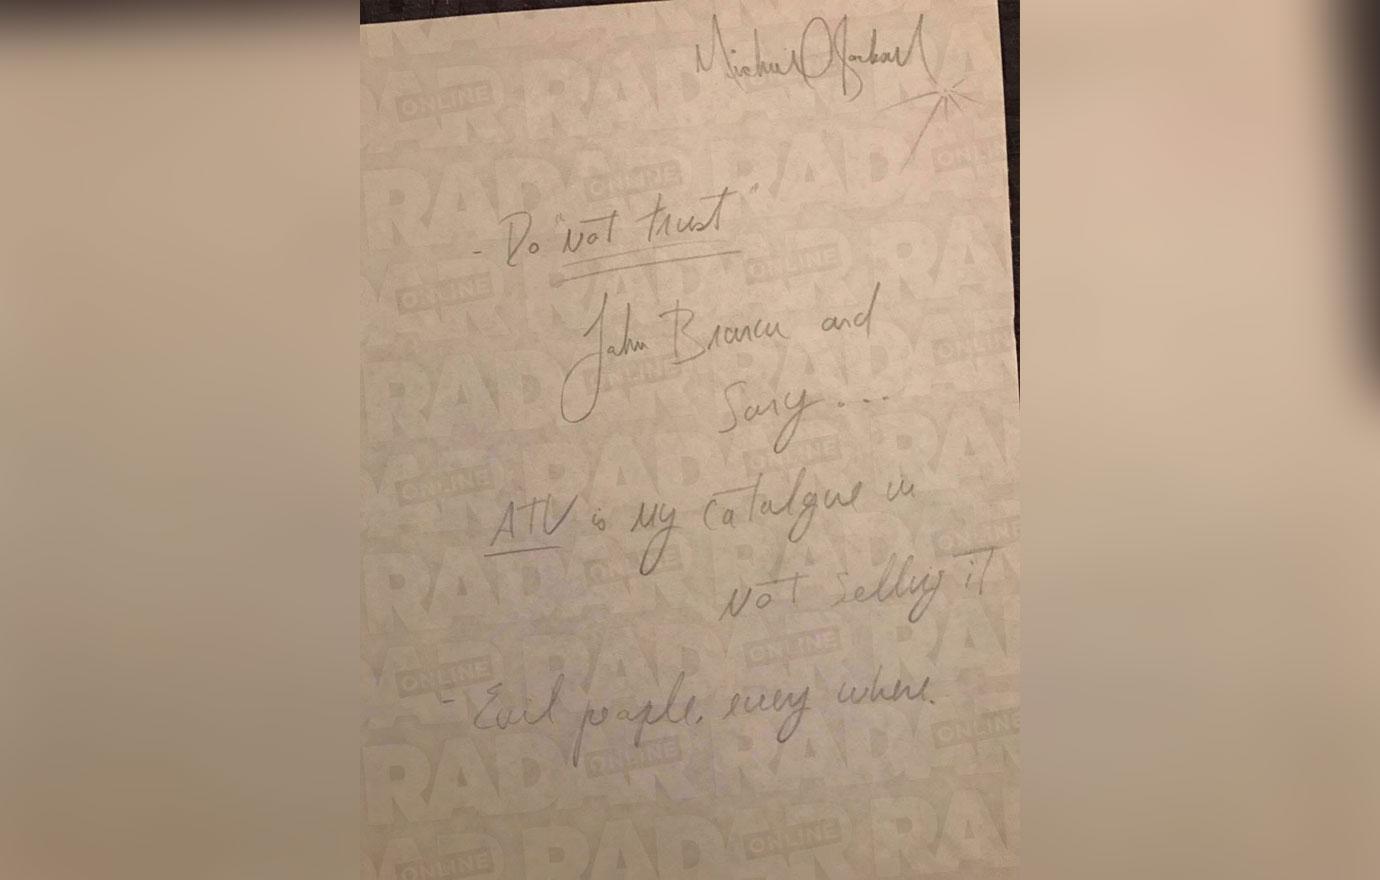 Michael Jackson
- Do "not trust"
John Branca and
Sony ...
ATV is my catalgue im
Not selling it
- Evil people, every where.
RADAR ONLINE